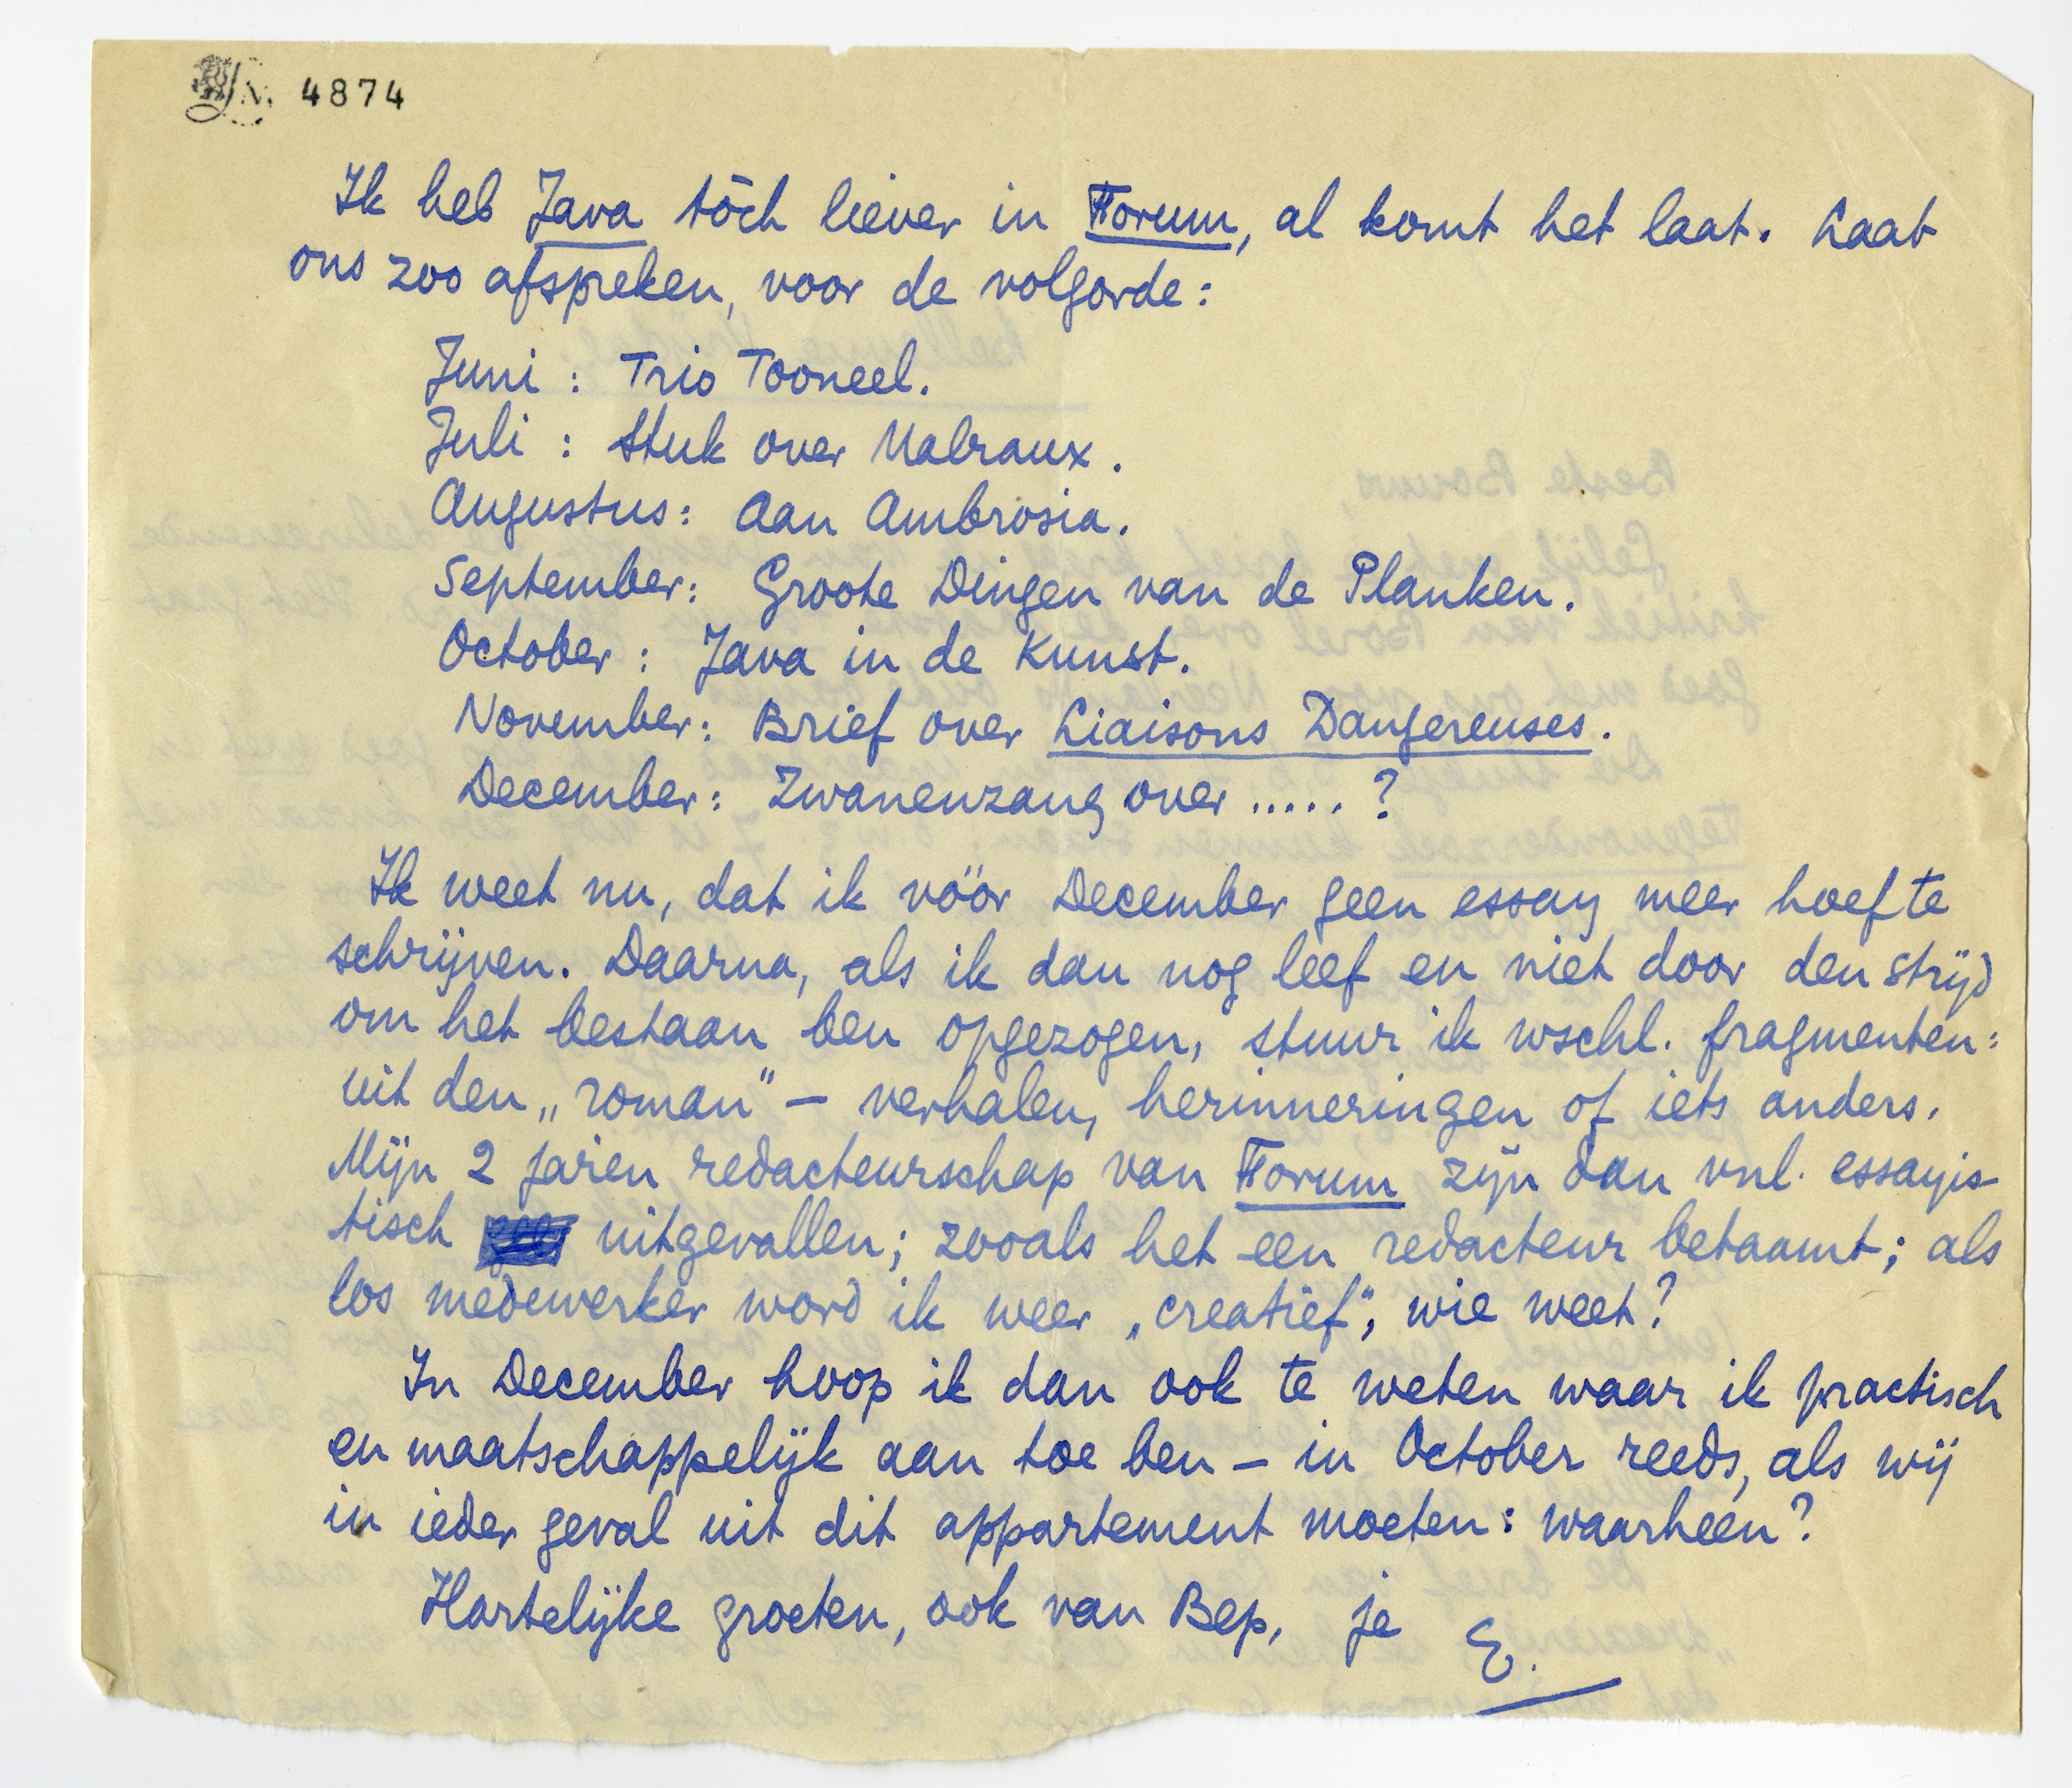 4874
Ik heb Java tóch liever in Forum, al komt het laat. Laat
ons zoo afspreken, voor de volgorde:
Juni : Trio Tooneel.
Juli : Stuk over Malraux.
Augustus: Aan Ambrosia.
September: Groote Dingen van de Planken.
October : Java in de Kunst.
November: Brief over Liaisons Dangereuses.
December: Zwanenzang over ..... ?
Ik weet nu, dat ik vóór December geen essay meer hoef te
schrijven. Daarna, als ik dan nog leef en niet door den strijd
om het bestaan ben opgezogen, stuur ik wschl. fragmenten:
uit den „roman” – verhalen, herinneringen of iets anders.
Mijn 2 jaren redacteurschap van Forum zijn dan vnl. essayis-
tisch uitgevallen; zooals het een redacteur betaamt; als
los medewerker word ik weer „creatief”, wie weet?
In December hoop ik dan ook te weten waar ik practisch
en maatschappelijk aan toe ben – in October reeds, als wij
in ieder geval uit dit appartement moeten: waarheen?
Hartelijke groeten, ook van Bep, je E.